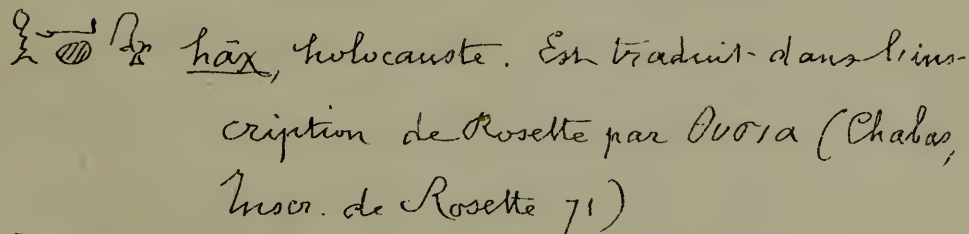 𓎛𓂝𓐍 hāx, holocauste. Est traduit dans l'ins-
cription de Rosette par θυσια (Chabas,
Inscr. de Rosette 71)